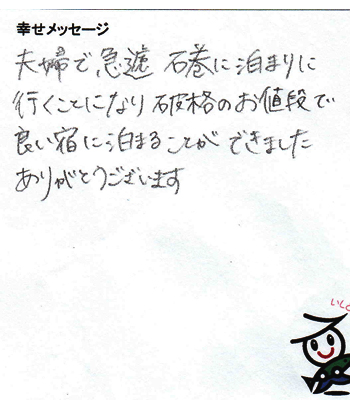 幸せメッセージ
夫婦で急遽石巻に泊まりに
行くことになり破格のお値段で
良い宿に泊まることができました
ありがとうございます